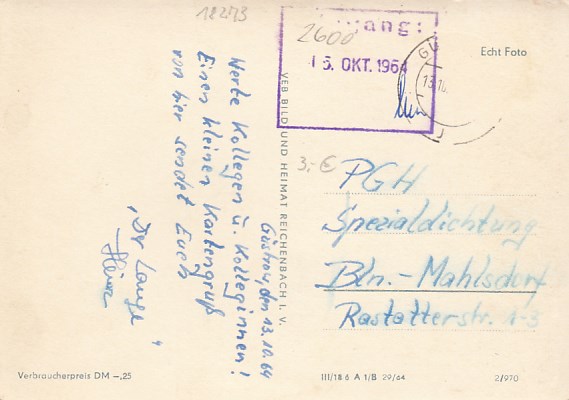 18273
Güstrow, den 13.10.64
Werte Kollegen u. Kolleginnen!
Einen kleinen Kartengruß
von hier sendet Euch
"Der Lange"
Heinz
Verbraucherpreis DM –,25
VEB BILD UND HEIMAT REICHENBACH I. V.
ang:
2600
15. OKT. 1964
GÜ
13.10.
Echt Foto
3,- €
PGH
Spezialdichtung
Bln.-Mahlsdorf
Rastatterstr. 1-3
III/18 6 A 1/B 29/64
2/970